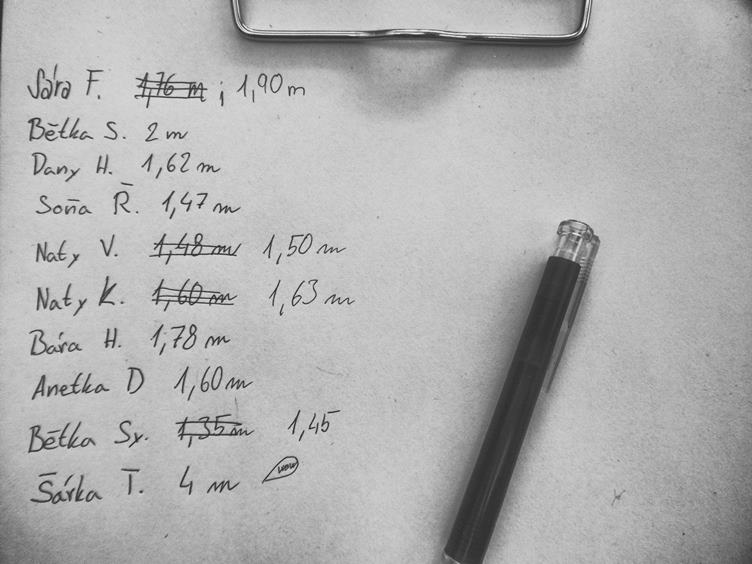 Sára F. 1,76 m ; 1,90 m
Bětka S. 2 m
Dany H. 1,62 m
Soňa Ř. 1,47 m
Naty V. 1,48 m 1,50 m
Naty K. 1,60 m 1,63 m
Bára H. 1,78 m
Anetka D 1,60 m
Bětka Sy. 1,35 m 1,45
Šárka T. 4 m wow